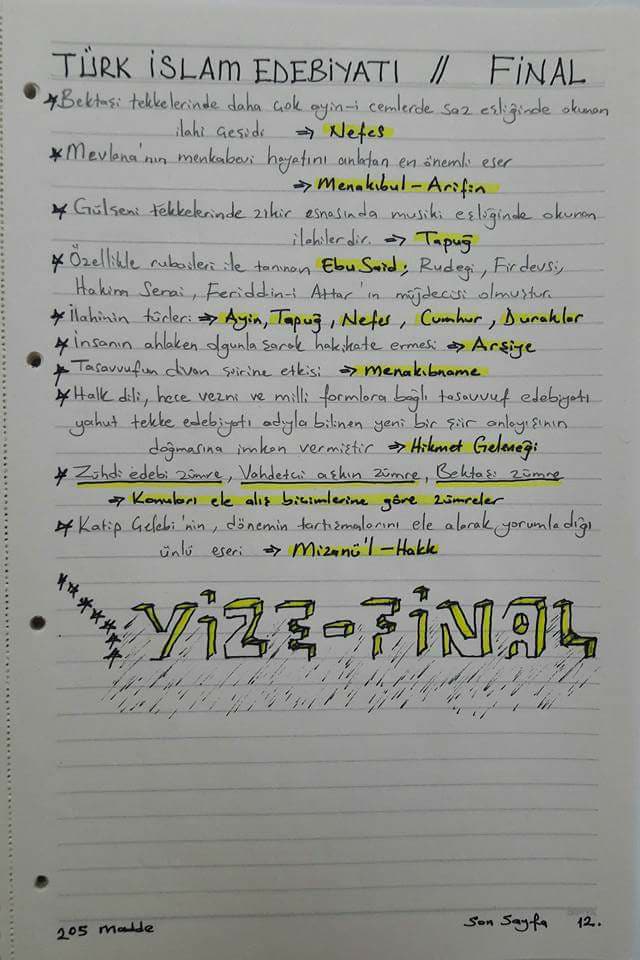 TÜRK İSLAM EDEBİYATI // FİNAL
* Bektaşi tekkelerinde daha çok ayin-i cemlerde saz eşliğinde okunan
ilahi çeşidi ⇒ Nefes
* Mevlana'nın menkabevi hayatını anlatan en önemli eser
⇒ Menakıbul-Arifin
* Gülşeni tekkelerinde zikir esnasında musiki eşliğinde okunan
ilahilerdir. ⇒ Tapuğ
* Özellikle rubaileri ile tanınan Ebu Said; Rudegi, Firdevsi,
Hakim Senai, Feriddin-i Attar'ın müjdecisi olmuştur.
* İlahinin türleri ⇒ Ayin, Tapuğ, Nefes, Cumhur, Duraklar
* İnsanın ahlaken olgunlaşarak hakikate ermesi ⇒ Arşiye
* Tasavvufun divan şiirine etkisi ⇒ menakıbname
* Halk dili, hece vezni ve milli formlara bağlı tasavvuf edebiyatı
yahut tekke edebiyatı adıyla bilinen yeni bir şiir anlayışının
doğmasına imkan vermiştir ⇒ Hikmet Geleneği
* Zühdi edebi zümre, Vahdetci aşkın zümre, Bektaşi zümre
⇒ Konuları ele alış biçimlerine göre zümreler
* Katip Çelebi'nin, dönemin tartışmalarını ele alarak yorumladığı
ünlü eseri ⇒ Mizanü'l-Hakk
VİZE-FİNAL
205 madde
Son Sayfa 12.